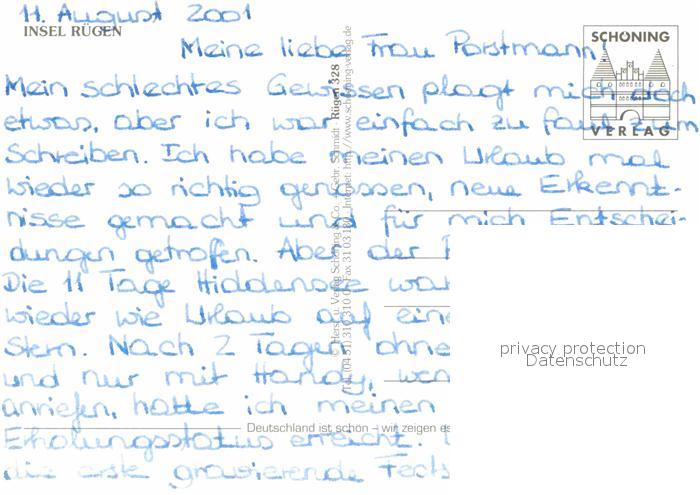 11. August 2001
INSEL RÜGEN
SCHÖNING
VERLAG
Meine liebe Frau Porstmann!
Mein schlechtes Gewissen plagt mich doch
etwas, aber ich war einfach zu faul zum
Schreiben. Ich habe meinen Urlaub mal
wieder so richtig genossen, neue Erkennt-
nisse gemacht und für mich Entschei-
dungen getroffen. Aber der
Die 11 Tage Hiddensee war
wieder wie Urlaub auf eine
Stern. Nach 2 Tagen ohne
und nur mit Handy, wenn
anriefen, hatte ich meinen
Erholungsstatus erreicht.
die erste gravierende Fests
Deutschland ist schön – wir zeigen es
Rügen 328
© Hersg. u. Verlag Schöning & Co. + Gebr. Schmidt
Tel. (04 51) 310 310 0 Fax 31 03 180 Internet: http://www.schoening-verlag.de
privacy protection
Datenschutz